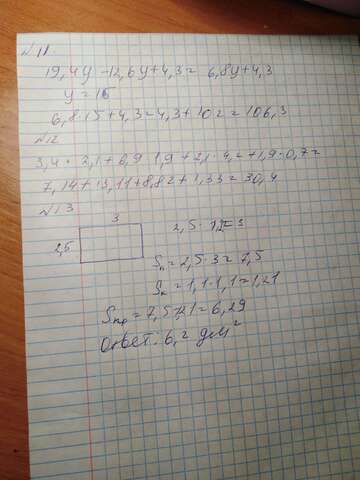 №11.
19,4y-12,6y+4,3= 6,8y+4,3
y=15
6,8·15+4,3=4,3+102=106,3
№12
3,4·2,1+6,9·1,9+2,1·4,2+1,9·0,7=
7,14+13,11+8,82+1,33=30,4
№13
3
2,5
2,5·1,2=3
Sп=2,5·3=7,5
Sк=1,1·1,1=1,21
=6,29
Ответ: 6,2 дм²